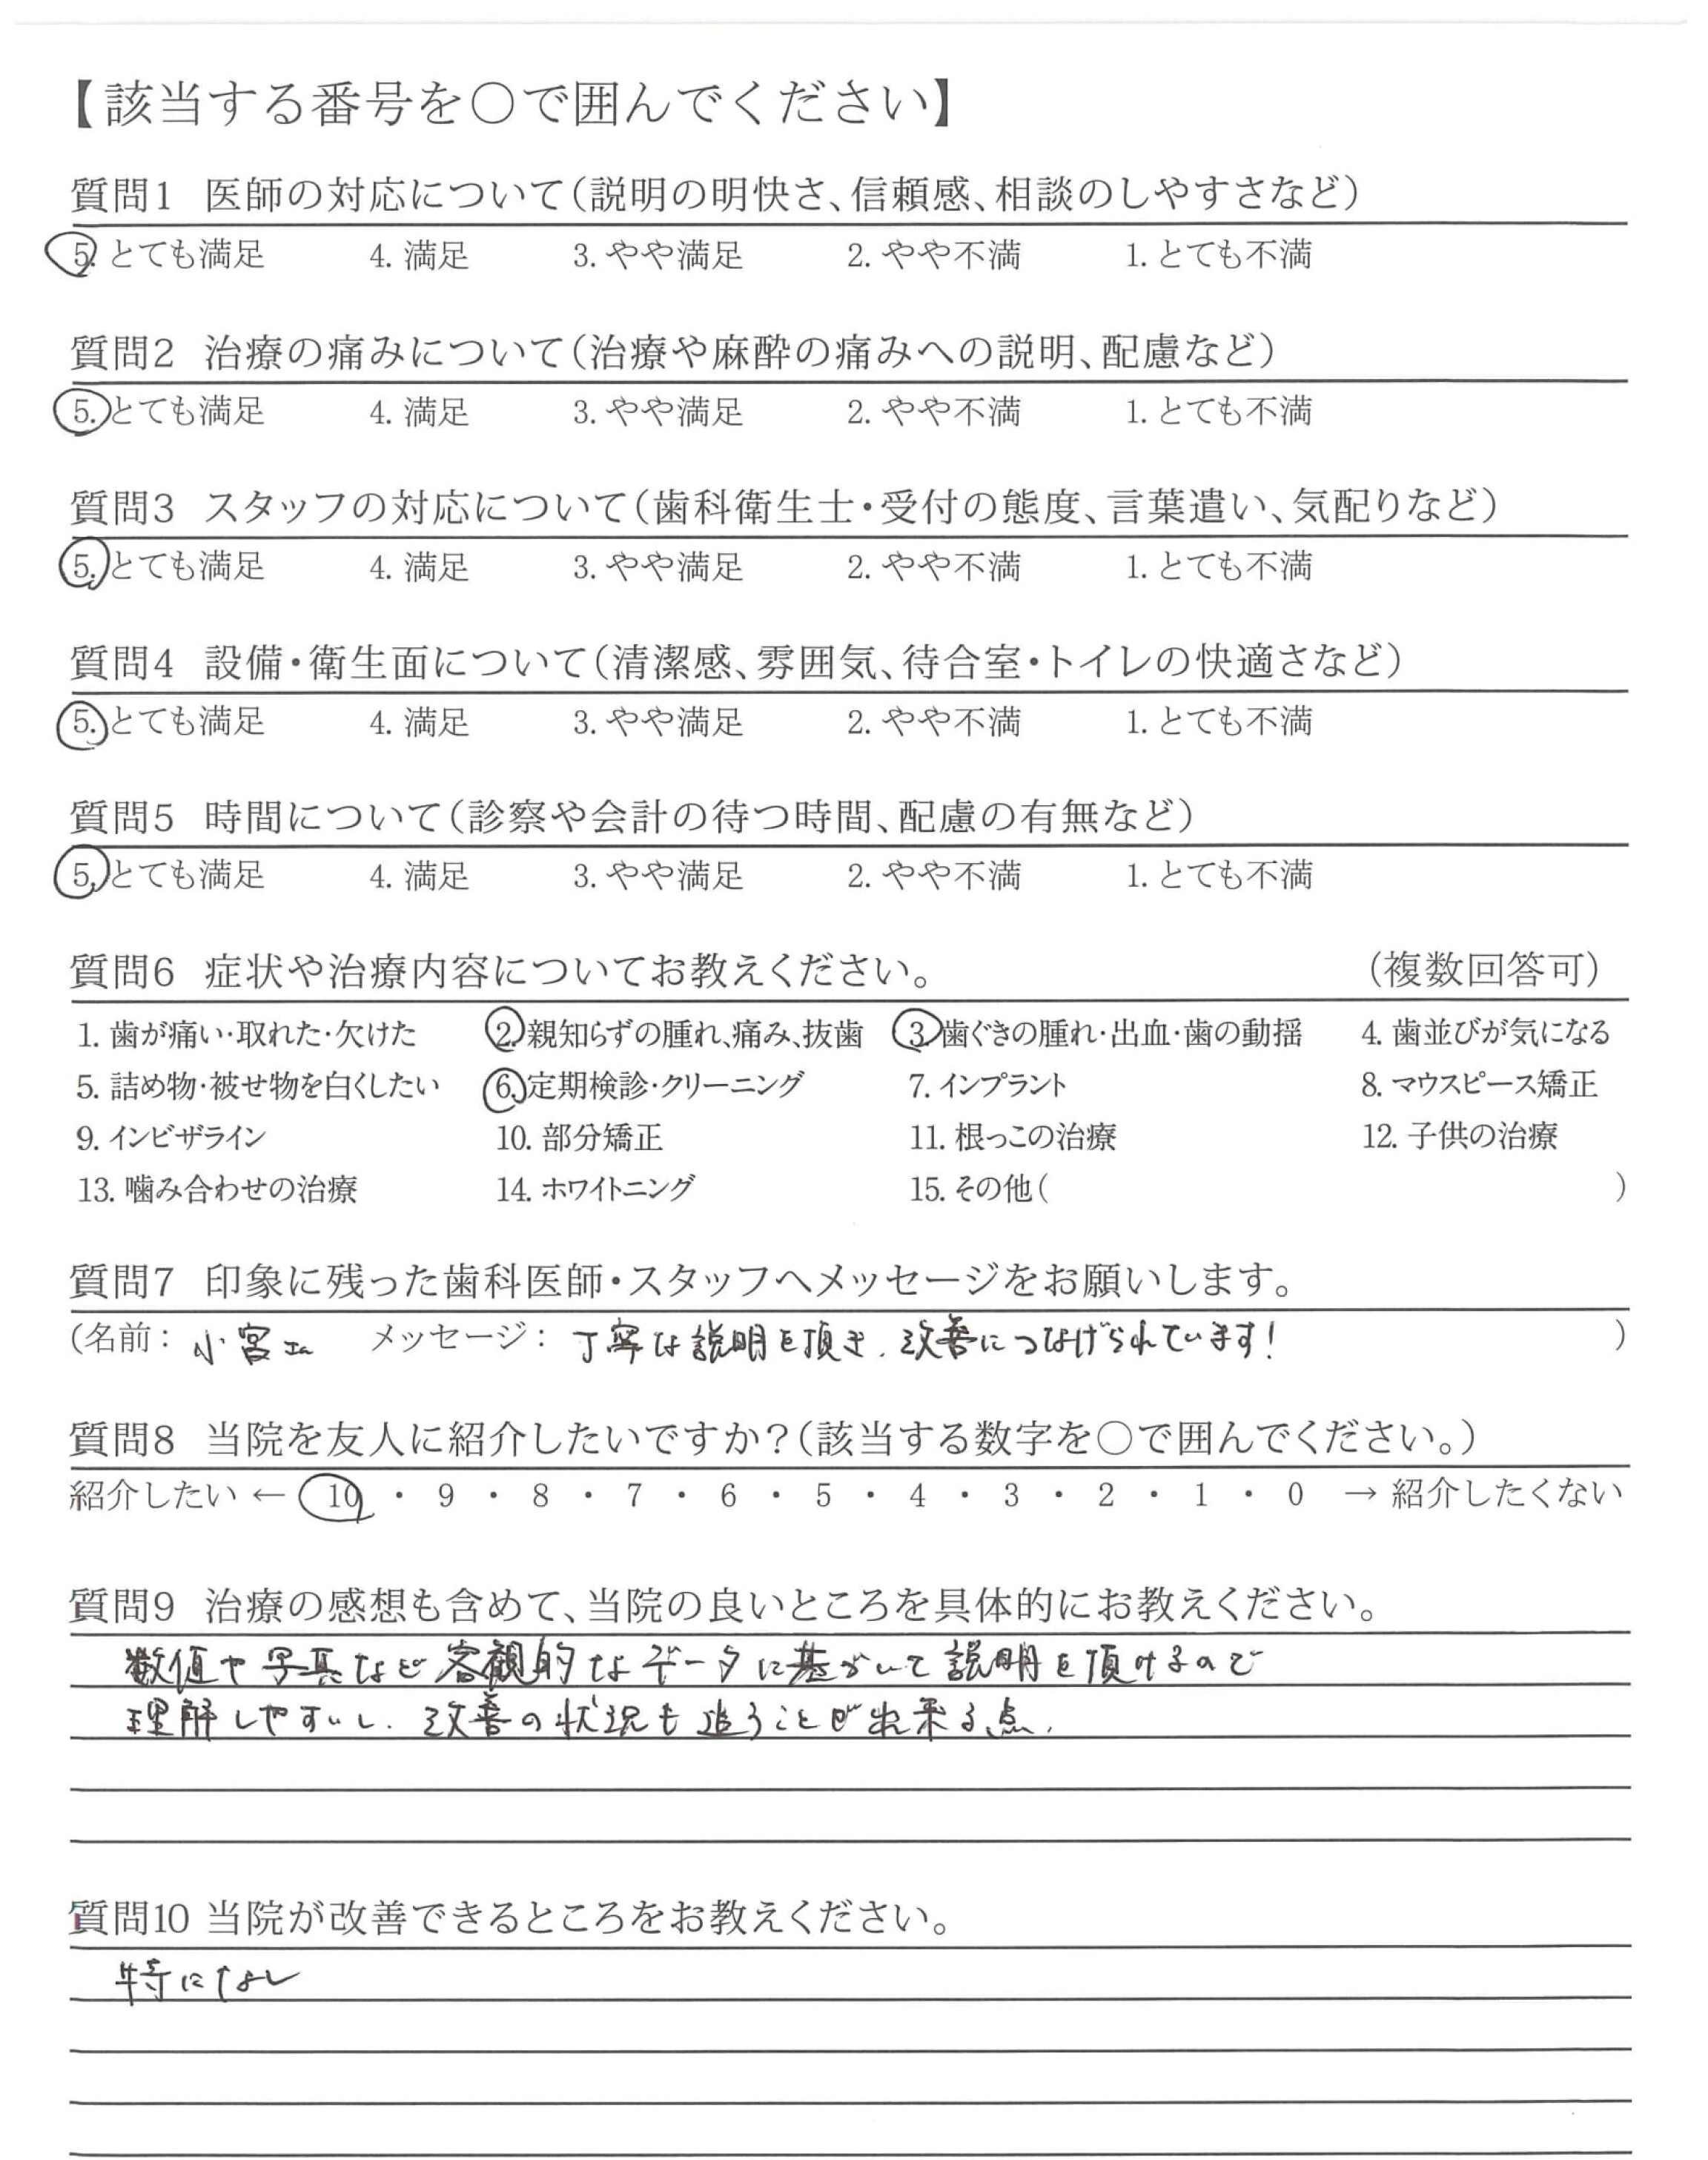 【該当する番号を〇で囲んでください】
質問1 医師の対応について(説明の明快さ、信頼感、相談のしやすさなど)
5. とても満足 4. 満足 3. やや満足 2. やや不満 1. とても不満
質問2 治療の痛みについて(治療や麻酔の痛みへの説明、配慮など)
5. とても満足 4. 満足 3. やや満足 2. やや不満 1. とても不満
質問3 スタッフの対応について(歯科衛生士・受付の態度、言葉遣い、気配りなど)
5. とても満足 4. 満足 3. やや満足 2. やや不満 1. とても不満
質問4 設備・衛生面について(清潔感、雰囲気、待合室・トイレの快適さなど)
5. とても満足 4. 満足 3. やや満足 2. やや不満 1. とても不満
質問5 時間について(診察や会計の待つ時間、配慮の有無など)
5. とても満足 4. 満足 3. やや満足 2. やや不満 1. とても不満
質問6 症状や治療内容についてお教えください。 (複数回答可)
1. 歯が痛い・取れた・欠けた 2. 親知らずの腫れ、痛み、抜歯 3. 歯ぐきの腫れ・出血・歯の動揺 4. 歯並びが気になる
5. 詰め物・被せ物を白くしたい 6. 定期検診・クリーニング 7. インプラント 8. マウスピース矯正
9. インビザライン 10. 部分矯正 11. 根っこの治療 12. 子供の治療
13. 噛み合わせの治療 14. ホワイトニング 15. その他( )
質問7 印象に残った歯科医師・スタッフへメッセージをお願いします。
(名前: 小宮 メッセージ: 丁寧な説明を頂き、改善につなげられています! )
質問8 当院を友人に紹介したいですか?(該当する数字を〇で囲んでください。)
紹介したい ← 10 ・ 9 ・ 8 ・ 7 ・ 6 ・ 5 ・ 4 ・ 3 ・ 2 ・ 1 ・ 0 → 紹介したくない
質問9 治療の感想も含めて、当院の良いところを具体的にお教えください。
数値や写真など客観的なデータに基づいて説明を頂けるので
理解しやすいし、改善の状況も追うことが出来る点、
質問10 当院が改善できるところをお教えください。
特になし